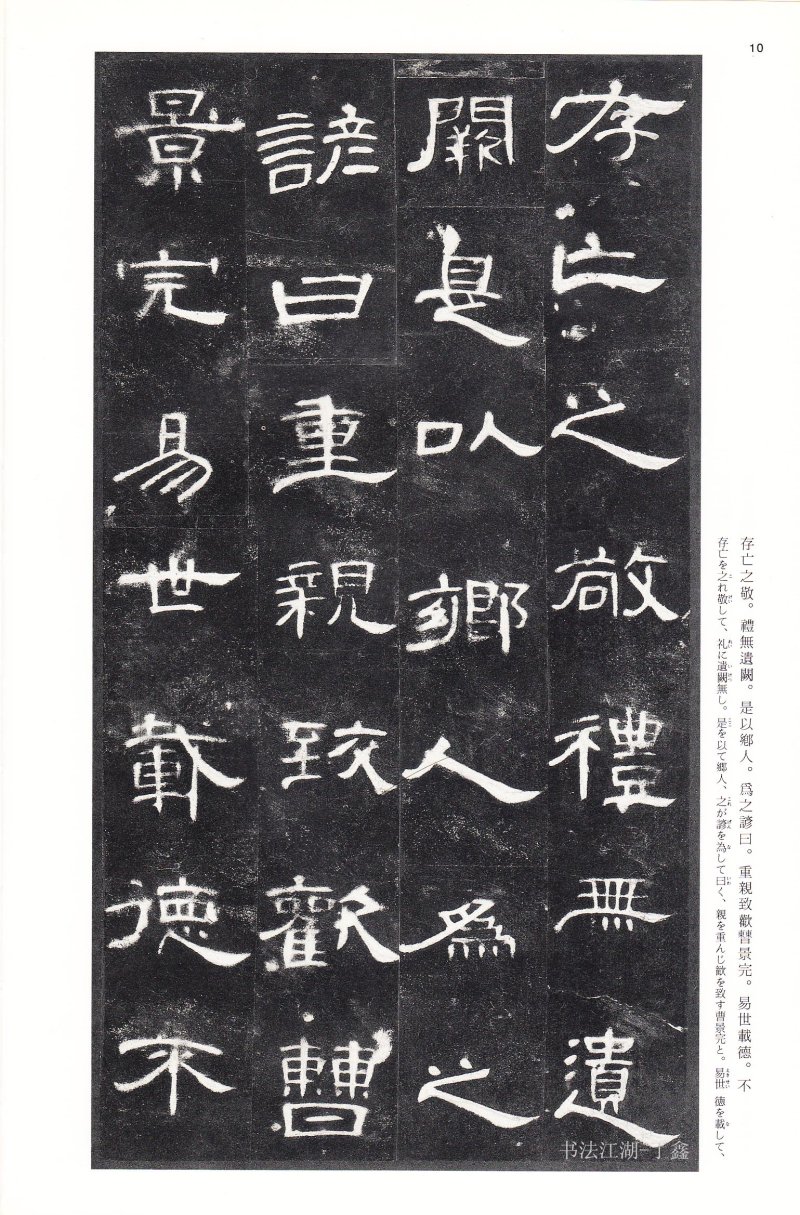 10
存亡之敬禮無遺
闕是以鄉人爲之
諺曰重親致歡曹
景完易世載德不
存亡之敬。禮無遺闕。是以鄉人。爲之諺曰。重親致歡曹景完。易世載德。不
存亡を之れ敬して、礼に遺闕無し。是を以て郷人、之が諺を為して曰く、親を重んじ歓を致す曹景完と。易世 徳を載して、
书法江湖-丁鑫